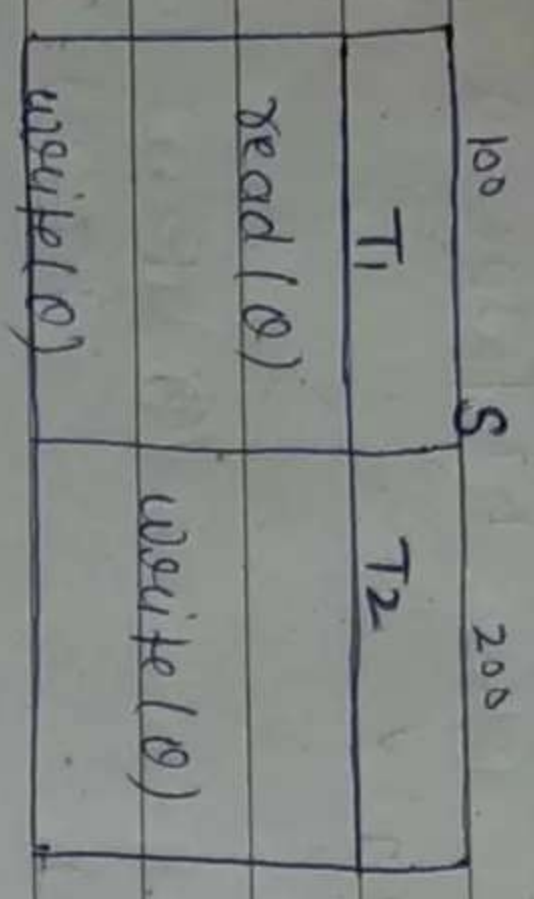 S
100 200
T1 T2
read(Q)
write(Q)
write(Q)